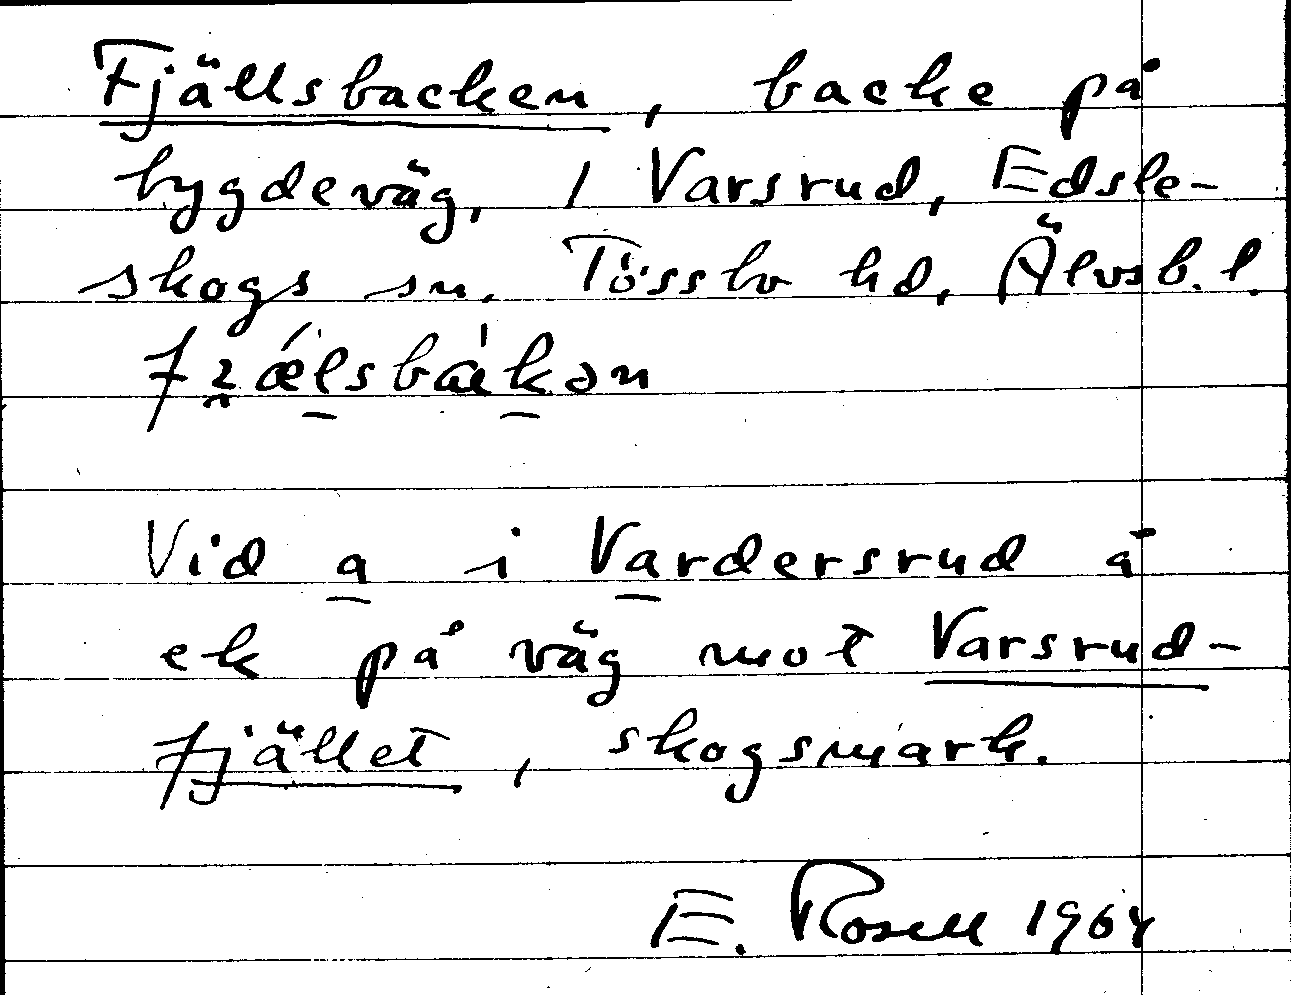 Fjällsbacken, backe på
bygdeväg, 1 Varsrud, Edsle-
skogs sn. Tössbo hd, Älvsb. l.
Vid a i Vardersrud å
ek på väg mot Varsrud-
fjället, skogsmark.
E. Rosell 1964